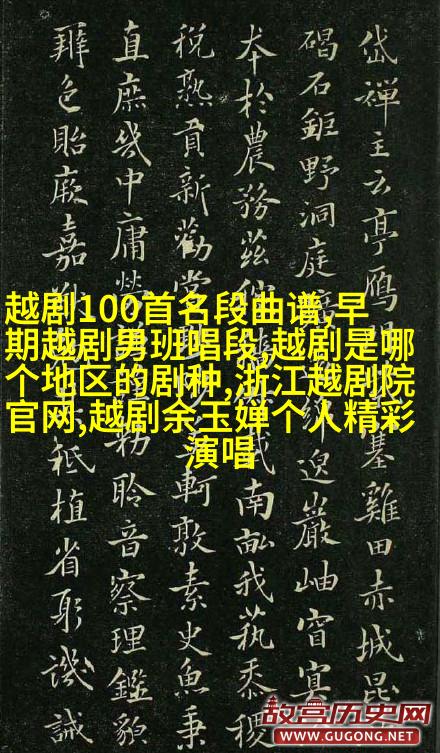 岱禪主云亭鴈塞雞田赤城昆
碣石鉅野洞庭邈巖岫窅冥
本於農務茲載南畝我藝黍稷
稅熟貢新勸賞軻敦素史魚秉
直庶幾中庸勞謙謹勑聆音察理鑑貌
辯色貽厥嘉祗植省躬譏誡
越剧100首名段曲谱,早
期越剧男班唱段,越剧是哪
个地区的剧种,浙江越剧院
官网,越剧余玉婵个人精彩
演唱
故宫历史网
WWW.GUGONG.NET